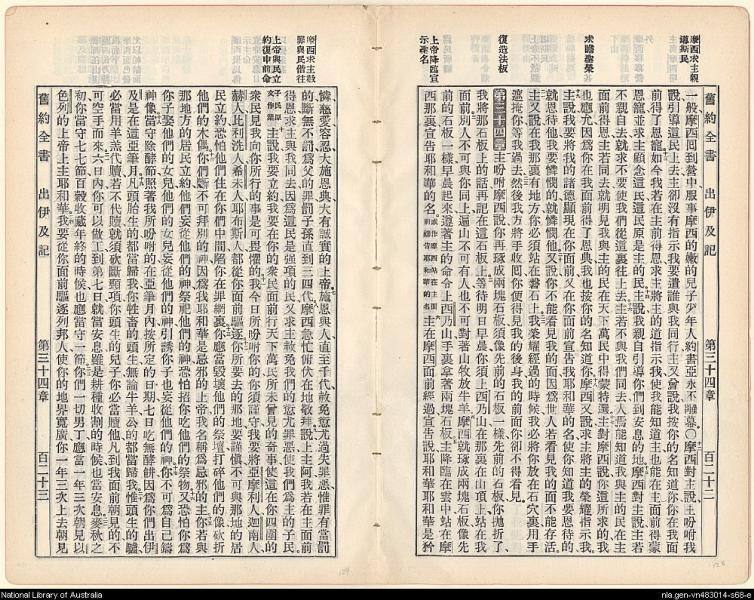 舊約全書　出伊及記　第三十四章　百二十二
摩西求主親
導斯民
求瞻聖榮
復造法板
上帝降臨宣
示聖名
一般摩西回到營中服事摩西的嫩的兒子少年人約書亞永不離幕〇摩西對主說主吩咐我
說引導這民上去主卻沒有指示我要遣誰與我同行主又曾說我按你的名知道你你在我面
前得了恩寵如今我若在主前得恩求主將主的道指示我使我能知道主也能在主面前得蒙
恩寵並求主顧念這民這民原是主的民主說我親自引導你們到安息的地摩西對主說主若
不親自去就求不要使我們從這裏往上去主若不與我們同去人焉能知道我與主的民在主
面前得恩主若同去就明見我與主的民在天下萬民中得蒙特選主對摩西說你這所求的我
也應允因爲你在我面前得了恩典我也按你的名知道你摩西又說求主將主的榮耀指示我
主說我要將我的諸德顯現在你面前又在你面前宣告我耶和華的名使你知道我要恩待的
就恩待他我要憐憫的就憐憫他又說你不能看見我的面因爲世人若看見我的面不能存活
主又說在我那裏有地方你必須站在磐石上我榮耀經過的時候我必將你放在石穴裏用手
遮掩你等我過去然後我方將手收回你便得見我的後身我的前面你卻不得看見
第三十四章主吩咐摩西說你再琢成兩塊石板須像先前的石板一樣先前的石板你拋折了
我將那石板上的話再記在這石板上等待明日早晨你須上西乃山在那裏在山頂上站在我
面前別人不可與你同上遍山不可有人也不可對著山牧放牛羊摩西就琢成兩塊石板像先
前的石板一樣早晨起來遵著主的命令上西乃山手裏拿著兩塊石板主降臨在雲中站在摩
西那裏宣告耶和華的名主在摩西面前經過宣告說耶和華耶和華是矜
摩西求主赦
罪與民偕往
上帝與民立
約復申前命
憐慈愛容忍大施恩典大有誠實的上帝施恩與人直至千代赦免愆尤過失罪惡惟罪有當罰
的斷無不罰爲父的罪罰子孫直到三四代摩西急忙俯伏在地敬拜說上主阿我若在主面前
得恩求主與我同去因爲這民是強項的民又求主赦免我們的愆尤罪惡使我們爲主的子民
主說我要立約我要在你的衆民面前行天下萬民所未曾見的奇事使這在你四圍的
衆民見我向你所行的事是可畏懼的我今日所吩咐你的你須謹守我要將亞摩利人迦南人
赫人比利洗人希未人耶布斯人都從你面前驅逐你所要去的那地要謹愼不可與那地的居
民立約恐怕他們住在你們中間陷你在罪網裏你應當毀壞他們的祭壇打碎他們的像砍折
他們的木偶你們斷不可拜別的神因爲我耶和華是忌邪的上帝我名稱爲忌邪的主你若與
那地方的居民立約他們妄從他們的神祭祀他們的神恐怕招你吃他們的祭物又恐怕你爲
你子娶他們的女兒他們的女兒妄從他們的神引誘你子也妄從他們的神你不可爲自己鑄
神像當守除酵節照著我所吩咐的在亞筆月內按所定的日期七日吃無酵餅因爲你們出伊
及是在這亞筆月凡頭胎生的都當歸我你牲畜的頭生無論牛羊公的都當歸我惟頭生的驢
必當用羊羔代贖若不代贖就須砍斷頸項你頭生的兒子你必當贖他凡到我面前朝見的不
可空手而來六日內你可以做工到第七日就當安息雖是耕種收割的時候也當安息麥秋之
初你當守七七節百穀收藏年終的時候也應當守一節你們一切男丁應當一年三次朝見以
色列的上帝上主耶和華我要從你面前驅逐列邦人使你的地界寬廣你一年三次上去朝見
舊約全書　出伊及記　第三十四章　百二十三
National Library of Australia
nla.gen-vn483014-s68-e